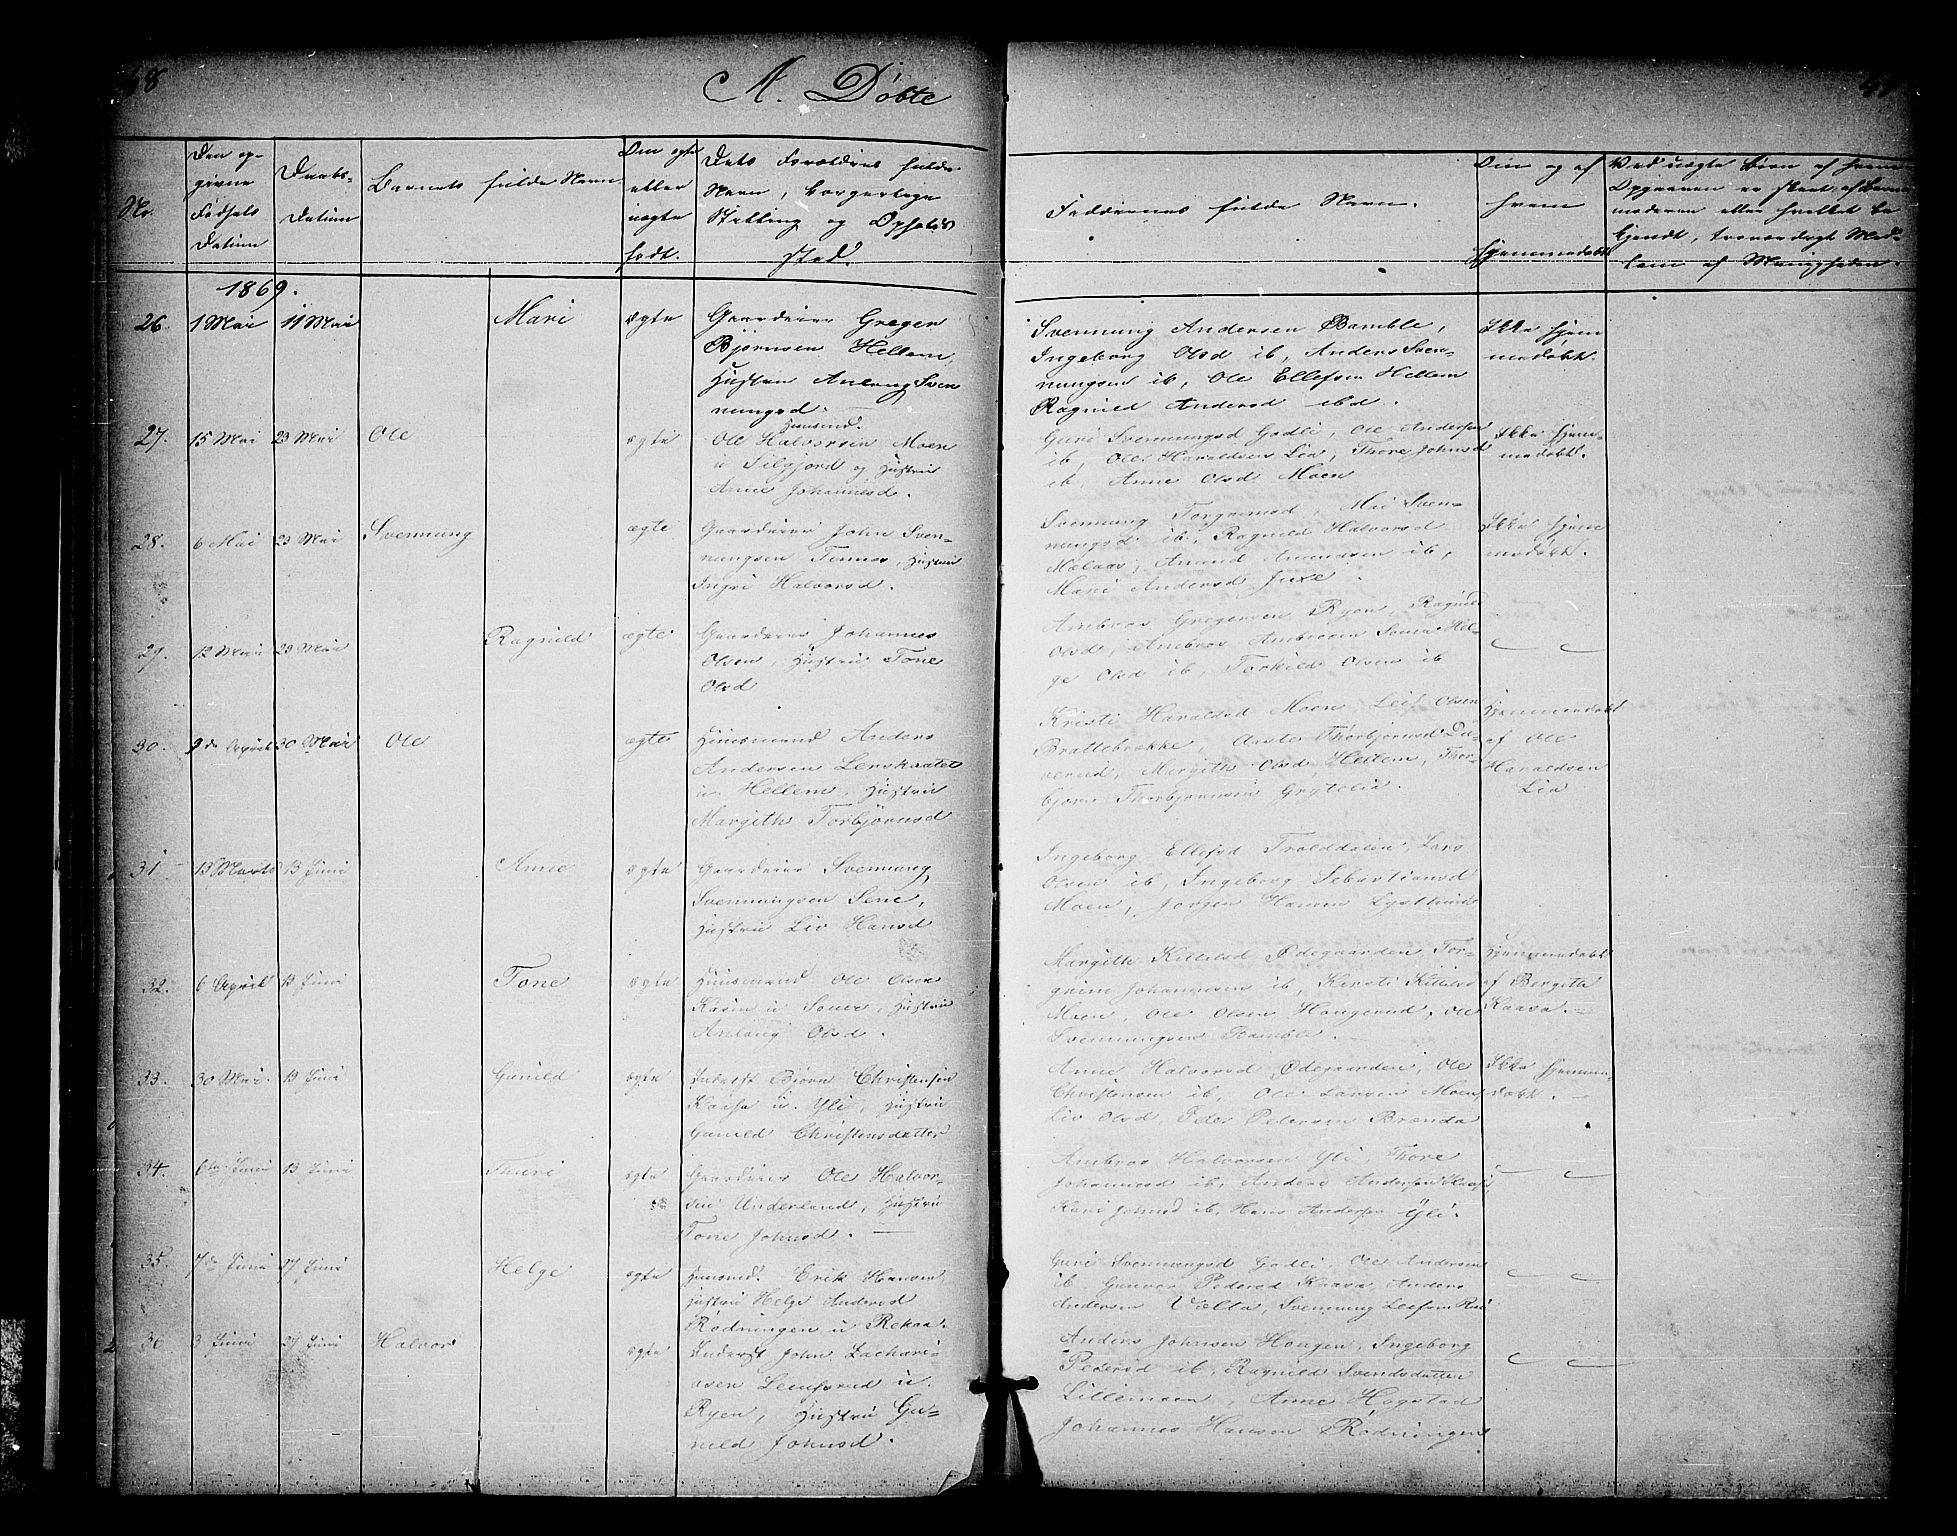 48
A. Döbte
49
No.
Den op-
givne
Födsels
Datum
Daabs-
Datum
Barnets fulde Navn
Om ægte
eller
uægte
født.
Dets Forældres fulde
Navn, borgerlige
Stilling og Opholds
sted.
Faddernes fulde Navn.
Om og af
hvem
hjemmedøbt
Ved uægte Børn af hvem
Opgaven er skeet, af Barne
moderen eller hvilket be
kjendt, troværdigt Med-
lem af Menigheden.
1869.
26. 1 Mai 11 Mai Mari ægte Gaardeier Gregen
Bjørnsen Hellem,
Hustru Anlaug Sven
nungsd.
Svennung Andersen Bamble,
Ingeborg Olsd ib, Anders Sven-
nungsen ib, Ole Ellefsen Hellem
Ragnild Andersd ibd.
Ikke hjem
medøbt.
27. 15 Mai 23 Mai Ole ægte Huusmd.
Ole Halvorsen Moen
u Silgjord og Hustru
Anne Johannesd.
Guri Svennungsd Godli, Ole Andersen
ib, Ole Haraldsen Lia, Thore Johnsd
ib, Anne Olsd Moen
Ikke hjem-
medøbt.
28. 6 Mai 23 Mai Svennung ægte Gaardeier John Sven-
nungsen Tinnes, Hustru
Ingri Halvorsd.
Svennung Torgrimsd, Mai Sven-
nungsd ib, Ragnild Halvorsd
Amund Amundsen ib,
Mari Andersd Juve.
Ikke hjem
medøbt.
29. 12 Mai 23 Mai Ragnild ægte Gaardeier Johannes
Olsen, Hustru Tone
Olsd
Ambros Gregersen Ryen, Ragnild
Olsd, Ambros Ambrosen Hel-
ge Olsd ib, Torkild Olsen ib
30. 9de April 30 Mai Ole ægte Huusmand Anders
Andersen Lenskaatet
u. Hellem, Hustru
Margith Torbjørnsd
Kristi Haraldsd Moen, Leif Olsen
Brattebrække, Aaste Thorbjørnsd Da-
verud, Margith Olsd, Hellem, Thor-
bjørn Thorbjørnsen Grytelia.
Hjemmedøbt
af Ole
Haraldsen
Lia
31 13 Marts 13 Juni Anne ægte Gaardeier Svennung
Svennungsen Sene,
Hustru Liv Hansd
Ingeborg Ellefsd Trolddalen, Lars
Olsen ib, Ingeborg Sebastiansd
Moen, Jørgen Hansen
32. 6 April 13 Juni Tone ægte Huusmand Ole Olsen
Kåsin u Hustru
Anlaug Olsd.
Margith Kittilsd Ødegaarden, Tor-
grim Johannesen ib, Kersti Kittilsd
Moen, Ole Olsen Haugerud, Ole
Svennungsen Bamble.
Hjemmedøbt
af Bergitte
Kaasa.
33. 30 Mai. 13 Juni Gunild ægte Inderst Bjørn Christensen
Kaasa u. Yli, Hustru
Gunild Christensdatter
Anne Halvorsd Ødegaarden, Ole
Christensen ib, Ole Larsen Moen
Liv Olsd, Peder Pedersen Brenda
Ikke hjemme-
døbt.
34. 6te Juni 13 Juni Thuri ægte Gaardeier Ole Halvor-
sen Underland, Hustru
Tone Johnsd.
Ambros Halvorsen Yli, Thore
Johannesd ib, Anders Andersen Kaasa,
Kari Johnsd ib, Hans Andersen Yli.
35. 7de Juni 27 Juni Helge ægte Huusmd. Erik Hansen,
Hustru Helge Andersd
Rødningen u Rekaa.
Guri Svennungsd Godli, Ole Andersen
ib. Gunvor Pedersd Kaasa, Anders
Andersen Vælta, Svennung Leifsen
36 3 Juni 27 Juni Halvor ægte Inderst John Zachari-
asen u.
Ryen, Hustru Gu-
nild Johnsd.
Anders Johnsen Haugen, Ingeborg
Pedersd ib, Ragnild Svendsdatter
Lillemoen, Anne Høgstad
Johannes Hansen Rødningen